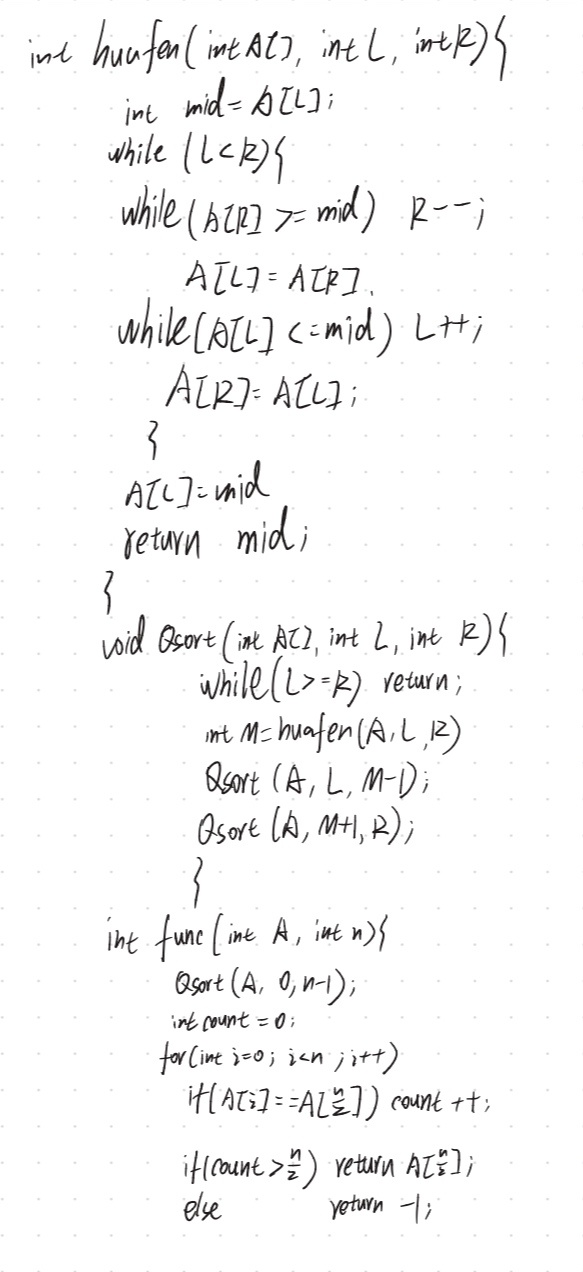 int huafen(int A[], int L, int R){
int mid=A[L];
while (L<R){
while(A[R] >= mid) R--;
A[L]=A[R].
while(A[L] <=mid) L++;
A[R]=A[L];
}
A[L]=mid
return mid;
}
void Qsort(int A[], int L, int R){
while(L>=R) return;
int M=huafen(A,L,R)
Qsort (A, L, M-1);
Qsort (A, M+1, R);
}
int func(int A, int n){
Qsort(A, 0,n-1);
int count=0;
for(int i=0; i<n ;i++)
if(A[i]==A[n/2]) count ++;
if(count>n/2) return A[n/2];
else return -1;